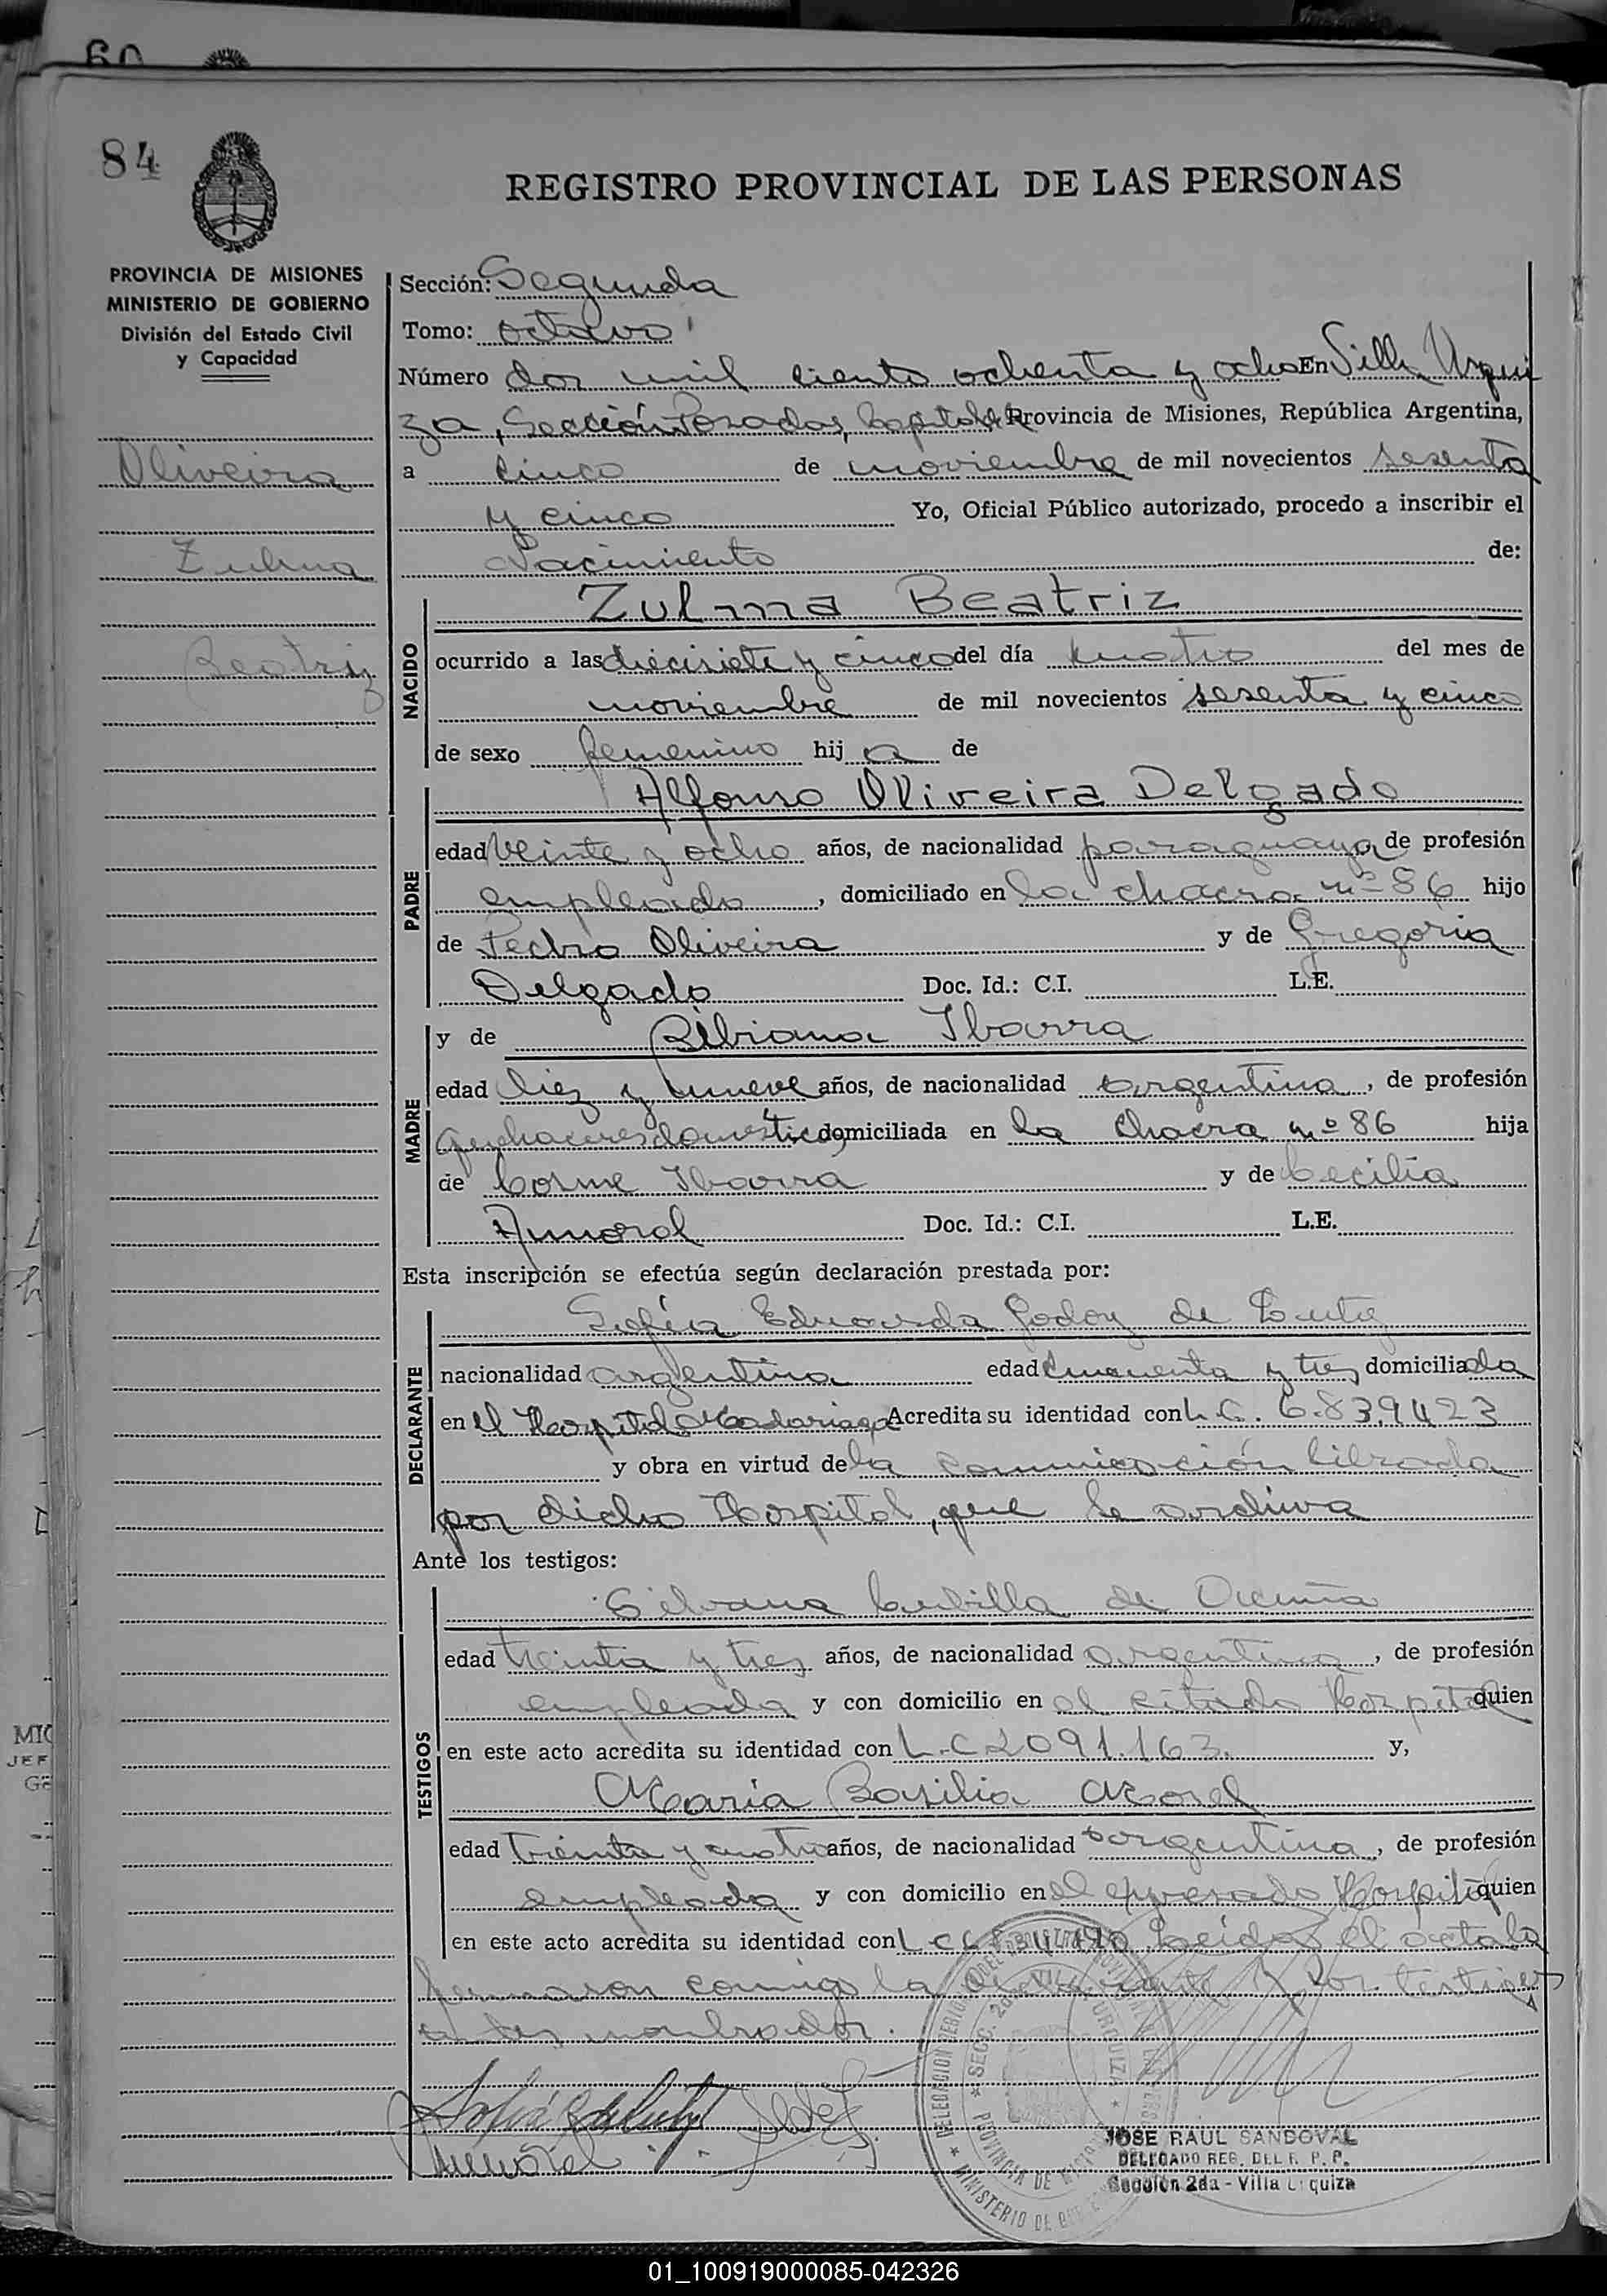 60
84
REGISTRO PROVINCIAL DE LAS PERSONAS
PROVINCIA DE MISIONES
MINISTERIO DE GOBIERNO
División del Estado Civil
y Capacidad
Oliveira
Zulma
Beatriz
Sección: Segunda
Tomo: octavo
Número dos mil ciento ochenta y ocho En Villa Urqui
za, Sección Posadas, Capital de Provincia de Misiones, República Argentina,
a cinco de noviembre de mil novecientos sesenta
y cinco Yo, Oficial Público autorizado, procedo a inscribir el
Nacimiento de:
NACIDO
Zulma Beatriz
ocurrido a las diecisiete y cinco del día cuatro del mes de
noviembre de mil novecientos sesenta y cinco
de sexo femenino hij a de
PADRE
Alfonso Oliveira Delgado
edad veinte y ocho años, de nacionalidad paraguaya de profesión
empleado, domiciliado en la chacra nº 86 hijo
de Pedro Oliveira y de Gregoria
Delgado Doc. Id.: C.I. L.E.
MADRE
y de Bibiana Ibarra
edad diez y nueve años, de nacionalidad argentina, de profesión
quehaceres domésticos domiciliada en la Chacra nº 86 hija
de Cosme Ibarra y de Cecilia
Amaral Doc. Id.: C.I. L.E.
Esta inscripción se efectúa según declaración prestada por:
DECLARANTE
Sofía Eduarda Godoy de
nacionalidad argentina edad cincuenta y tres domiciliada
en el Hospital Madariaga Acredita su identidad con L.C. 6.839.423
y obra en virtud de la comunicación librada
por dicho Hospital, que se archiva
Ante los testigos:
TESTIGOS
Silvana Cubilla de
edad treinta y tres años, de nacionalidad argentina, de profesión
empleada y con domicilio en el citado Hospital quien
en este acto acredita su identidad con L.C 2091.163. y,
María Basilia Morel
edad treinta y cuatro años, de nacionalidad argentina, de profesión
empleada y con domicilio en el expresado Hospital quien
en este acto acredita su identidad con L.C Leída el acta la
firmaron conmigo la declarante y los testigos
antes nombrados.
SECC. 2da VILLA URQUIZA
PROVINCIA DE MISIONES
MINISTERIO DE
JOSE RAUL SANDOVAL
DELEGADO REG. DEL R. P. P.
Sección 2da - Villa Urquiza
01_100919000085-042326